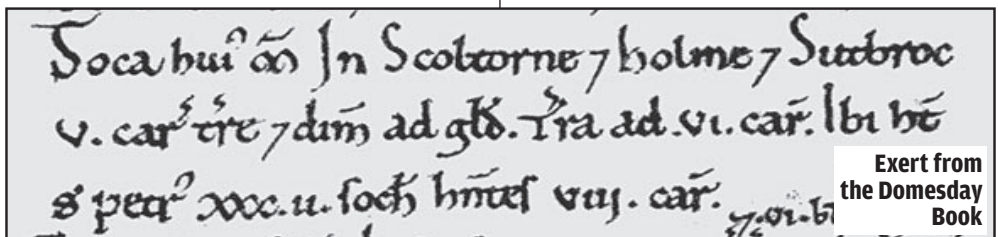 Soca hui᷒ M̃ In Scoltorne ⁊ holme ⁊ Sutbroc
v. car᷒ tr̃e ⁊ dim̃ ad gld̃. Tr̃a ad .vi. car̃. Ibi ht̃
s̃ petr᷒ xxx.v. socħ hñtes viij. car̃.
Exert from
the Domesday
Book